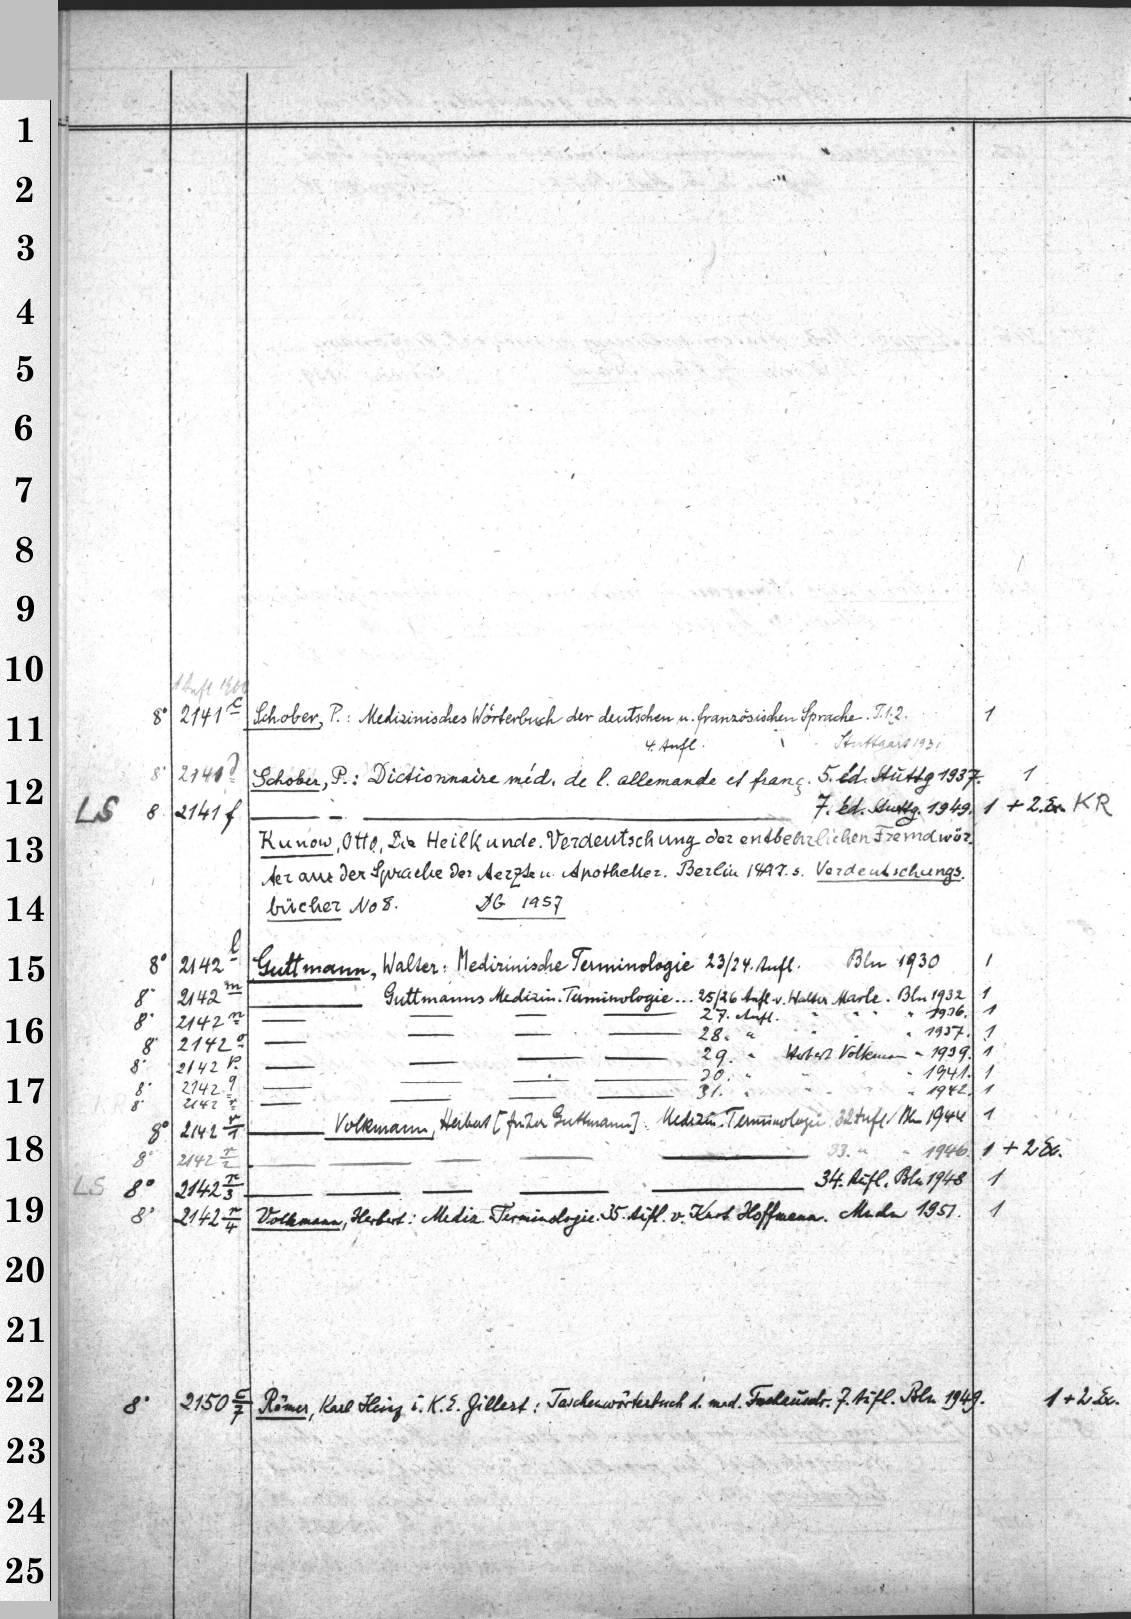 1
2
3
4
5
6
7
8
9
10
11
12
13
14
15
16
17
18
19
20
21
22
23
24
25
1 Aufl 1900
8° 2141 c Schober, P.: Medizinisches Wörterbuch der deutschen u. französischen Sprache. T.1.2. 1
4. Aufl. Stuttgart 1931
8° 2141 Schober, P.: Dictionnaire méd. de l. allemande et franç. 5. éd. Stuttg 1937. 1
LS 8 2141 f — — — 7. éd. Stuttg. 1949. 1 + 2. Ex. KR
Kunow, Otto, Die Heilkunde. Verdeutschung der entbehrlichen Fremdwör-
ter aus der Sprache der Aerzte u. Apotheker. Berlin 1897. s. Verdeutschungs-
bücher No 8. DG 1957
8° 2142 l Guttmann, Walter: Medizinische Terminologie 23/24. Aufl. Bln 1930 1
8° 2142 m — Guttmanns Medizin. Terminologie... 25/26 Aufl. v. Walter Marle. Bln 1932 1
8° 2142 n — — — — 27. Aufl. " " " " 1936. 1
8° 2142 o — — — — 28. " " " " 1937. 1
8° 2142 p. — — — — 29. " Herbert Volkmann " 1939. 1
8° 2142 q — — — — 30. " " " " 1941. 1
8° 2142 r — — — — 31. " " " " 1942. 1
8° 2142 r/1 — Volkmann, Herbert [früher Guttmann]: Medizin. Terminologie 32 Aufl. Bln 1944 1
8° 2142 r/2 — — — — — 33. " " 1946. 1 + 2 Ex.
LS 8° 2142 r/3 — — — — — 34. Aufl. Bln 1948 1
8° 2142 r/4 Volkmann, Herbert: Mediz. Terminologie. 35. Aufl. v. Kurt Hoffmann. Mchn 1951. 1
8° 2150 c/7 Römer, Karl Heinz u. K. E. Gillert: Taschenwörterbuch d. med. Fachausdr. 7. Aufl. Bln 1949. 1 + 2 Ex.